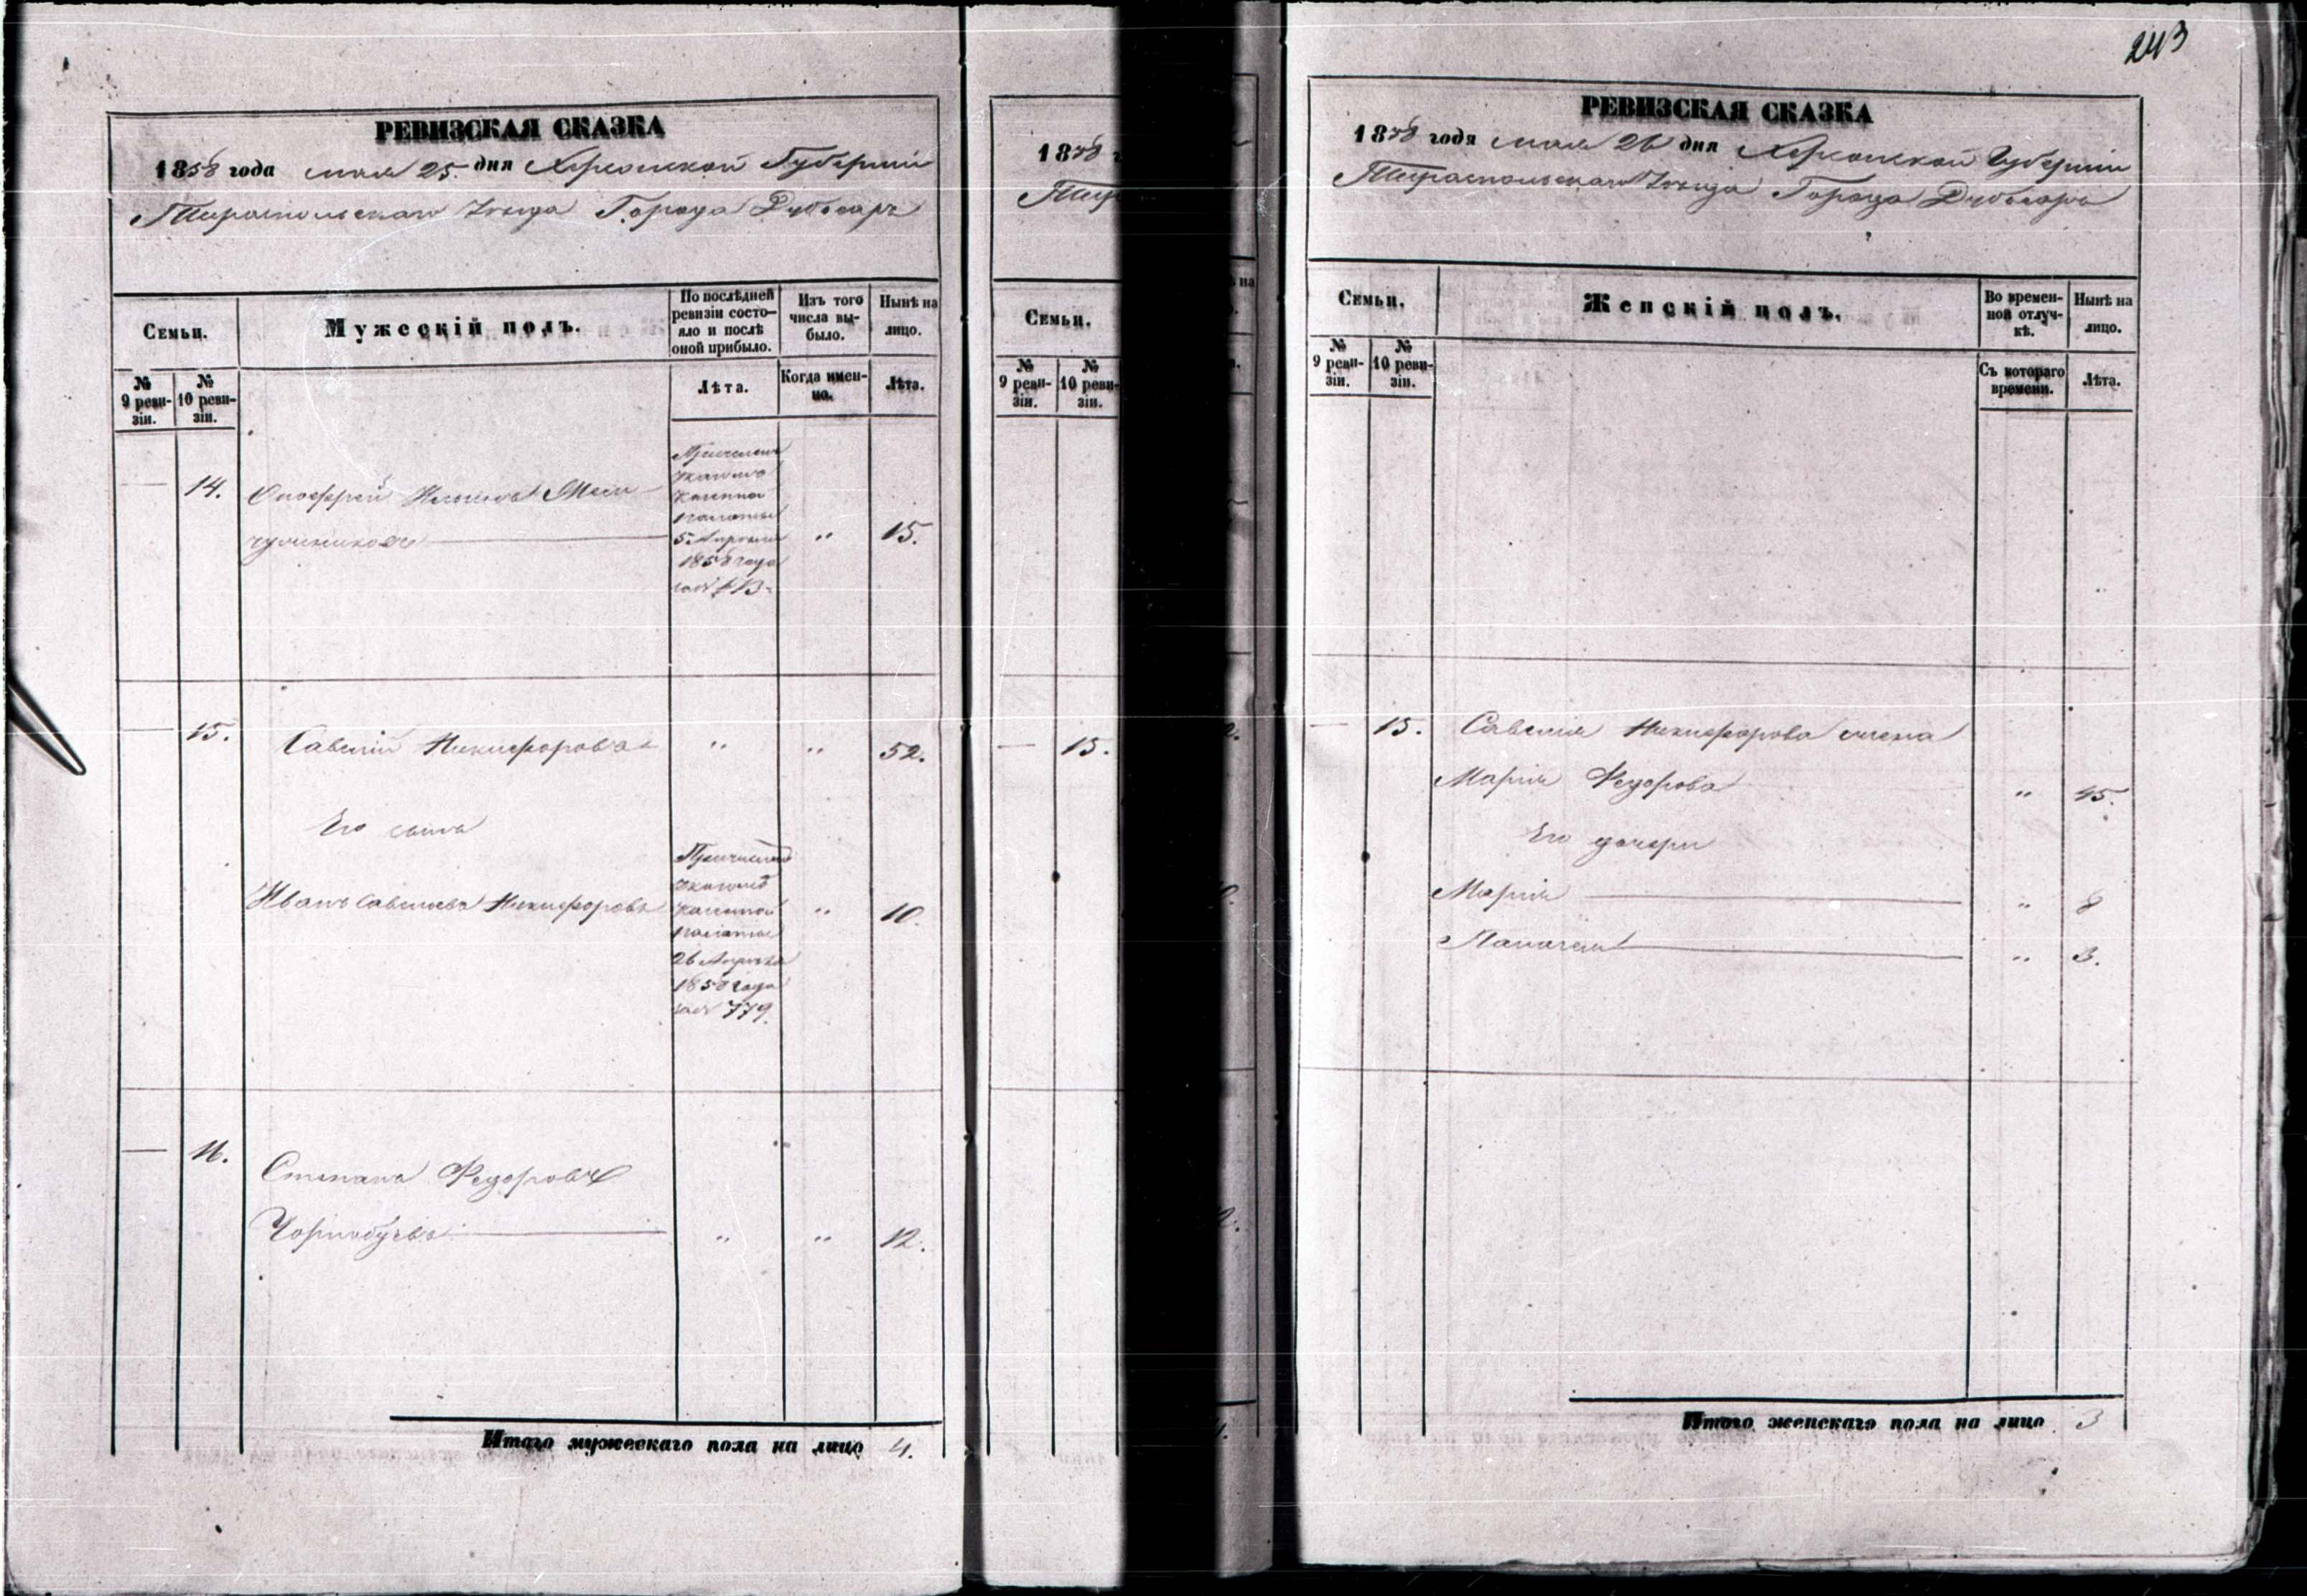 243
РЕВИЗСКАЯ СКАЗКА
1858 года мая 25 дня Херсонской Губерніи
Тираспольскаго Уѣзда Города Дубосаръ
Семьи.
Мужескій полъ.
По послѣдней ревизіи состояло и послѣ оной прибыло.
Изъ того числа выбыло.
Нынѣ на лицо.
№ 9 ревизіи.
№ 10 ревизіи.
Лѣта.
Когда именно.
Лѣта.
— 14.
15.
5 Апрѣля
1858 года
— 15. Савелій Никифоровъ " " 52.
Его сынъ
Иванъ Савельевъ Никифоровъ " 10.
26 Апрѣля
1858 года
779.
— 16.
Степанъ Федоровъ
" " 12.
Итого мужескаго пола на лицо 4.
1858
Тир
Семьи.
№ 9 ревизіи.
№ 10 ревизіи.
— 15.
РЕВИЗСКАЯ СКАЗКА
1858 года мая 26 дня Херсонской Губерніи
Тираспольскаго Уѣзда Города Дубосаръ
Семьи.
Женскій полъ.
Во временной отлучкѣ.
Нынѣ на лицо.
№ 9 ревизіи.
№ 10 ревизіи.
Съ котораго времени.
Лѣта.
— 15. Савелія Никифорова жена
Марія Федорова " 45.
Его дочери
Марія " 8
" 3.
Итого женскаго пола на лицо 3